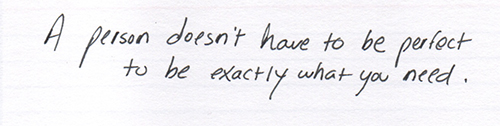 A person doesn't have to be perfect
to be exactly what you need.